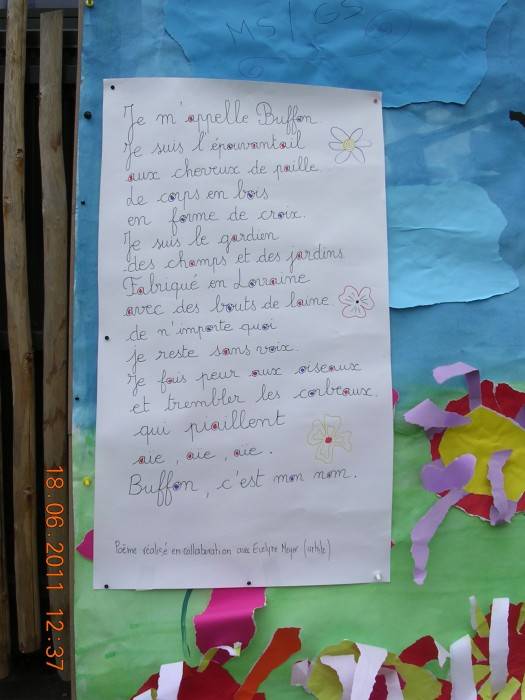 MS/GS
Je m'appelle Buffon
Je suis l'épouvantail
aux cheveux de paille
Le corps en bois
en forme de croix.
Je suis le gardien
des champs et des jardins
Fabriqué en Lorraine
avec des bouts de laine
de n'importe quoi
je reste sans voix.
Je fais peur aux oiseaux
et trembler les corbeaux.
qui piaillent
aïe, aïe, aïe.
Buffon, c'est mon nom.
Poème réalisé en collaboration avec Evelyne Meyer (artiste)
18.06.2011 12:37